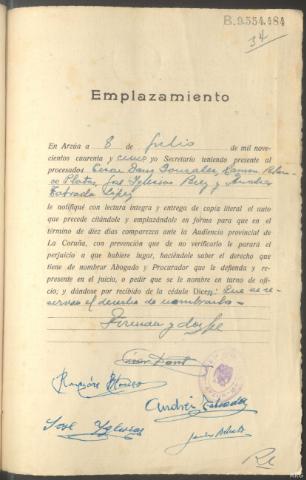 B.9.554.484
34
Emplazamiento
En Arzúa a 8 de Julio de mil nove-
cientos cuarenta y cinco yo Secretario teniendo presente al
procesados César Dans González, Ramón Blan-
co Platas, José Iglesias Baez y Andrés
Taboada López
le notifiqué con lectura íntegra y entrega de copia literal el auto
que precede citándole y emplazándole en forma para que en el
término de diez días comparezca ante la Audiencia provincial de
La Coruña, con prevención de que no verificarlo le parará el
perjuicio a que hubiere lugar, haciéndole saber el derecho que
tiene de nombrar Abogado y Procurador que le defienda y re-
presente en el juicio, o pedir que se le nombre en turno de ofi-
cio; y dándose por recibido de la cédula Dicen: Que se re-
servan el derecho de nombrarlos.-
Firman y doy fe
César Dans
Ramón Blanco
Andrés Taboada
José Iglesias